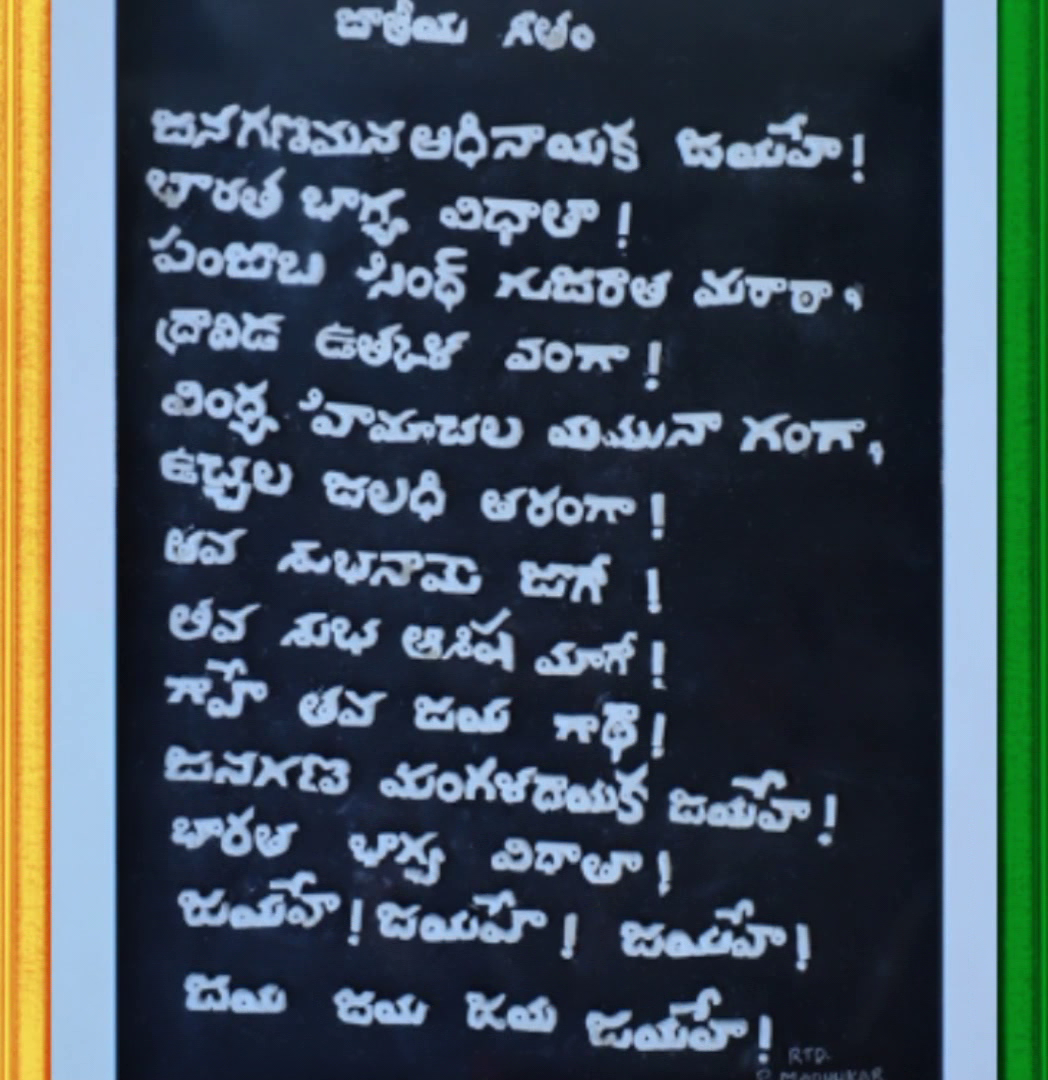 జాతీయ గీతం
జనగణమన ఆధినాయక జయహే!
భారత భాగ్య విధాతా!
పంజాబ సింధ్ గుజరాత మరాఠా,
ద్రావిడ ఉత్కళ వంగా!
వింధ్య హిమాచల యమునా గంగా,
ఉచ్చల జలధి తరంగా!
తవ శుభనామె జాగే !
తవ శుభ ఆశిష మాగే!
గాహే తవ జయ గాథ!
జనగణ మంగళదాయక జయహే!
భారత భాగ్య విధాతా!
జయహే! జయహే! జయహే!
జయ జయ జయ జయహే!
RTD.